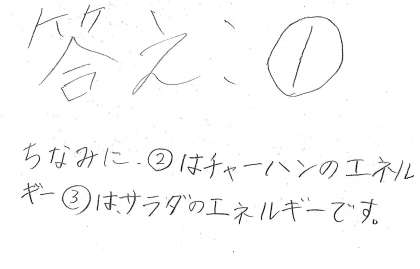 答え:①
ちなみに、②はチャーハンのエネル
ギー③は、サラダのエネルギーです。